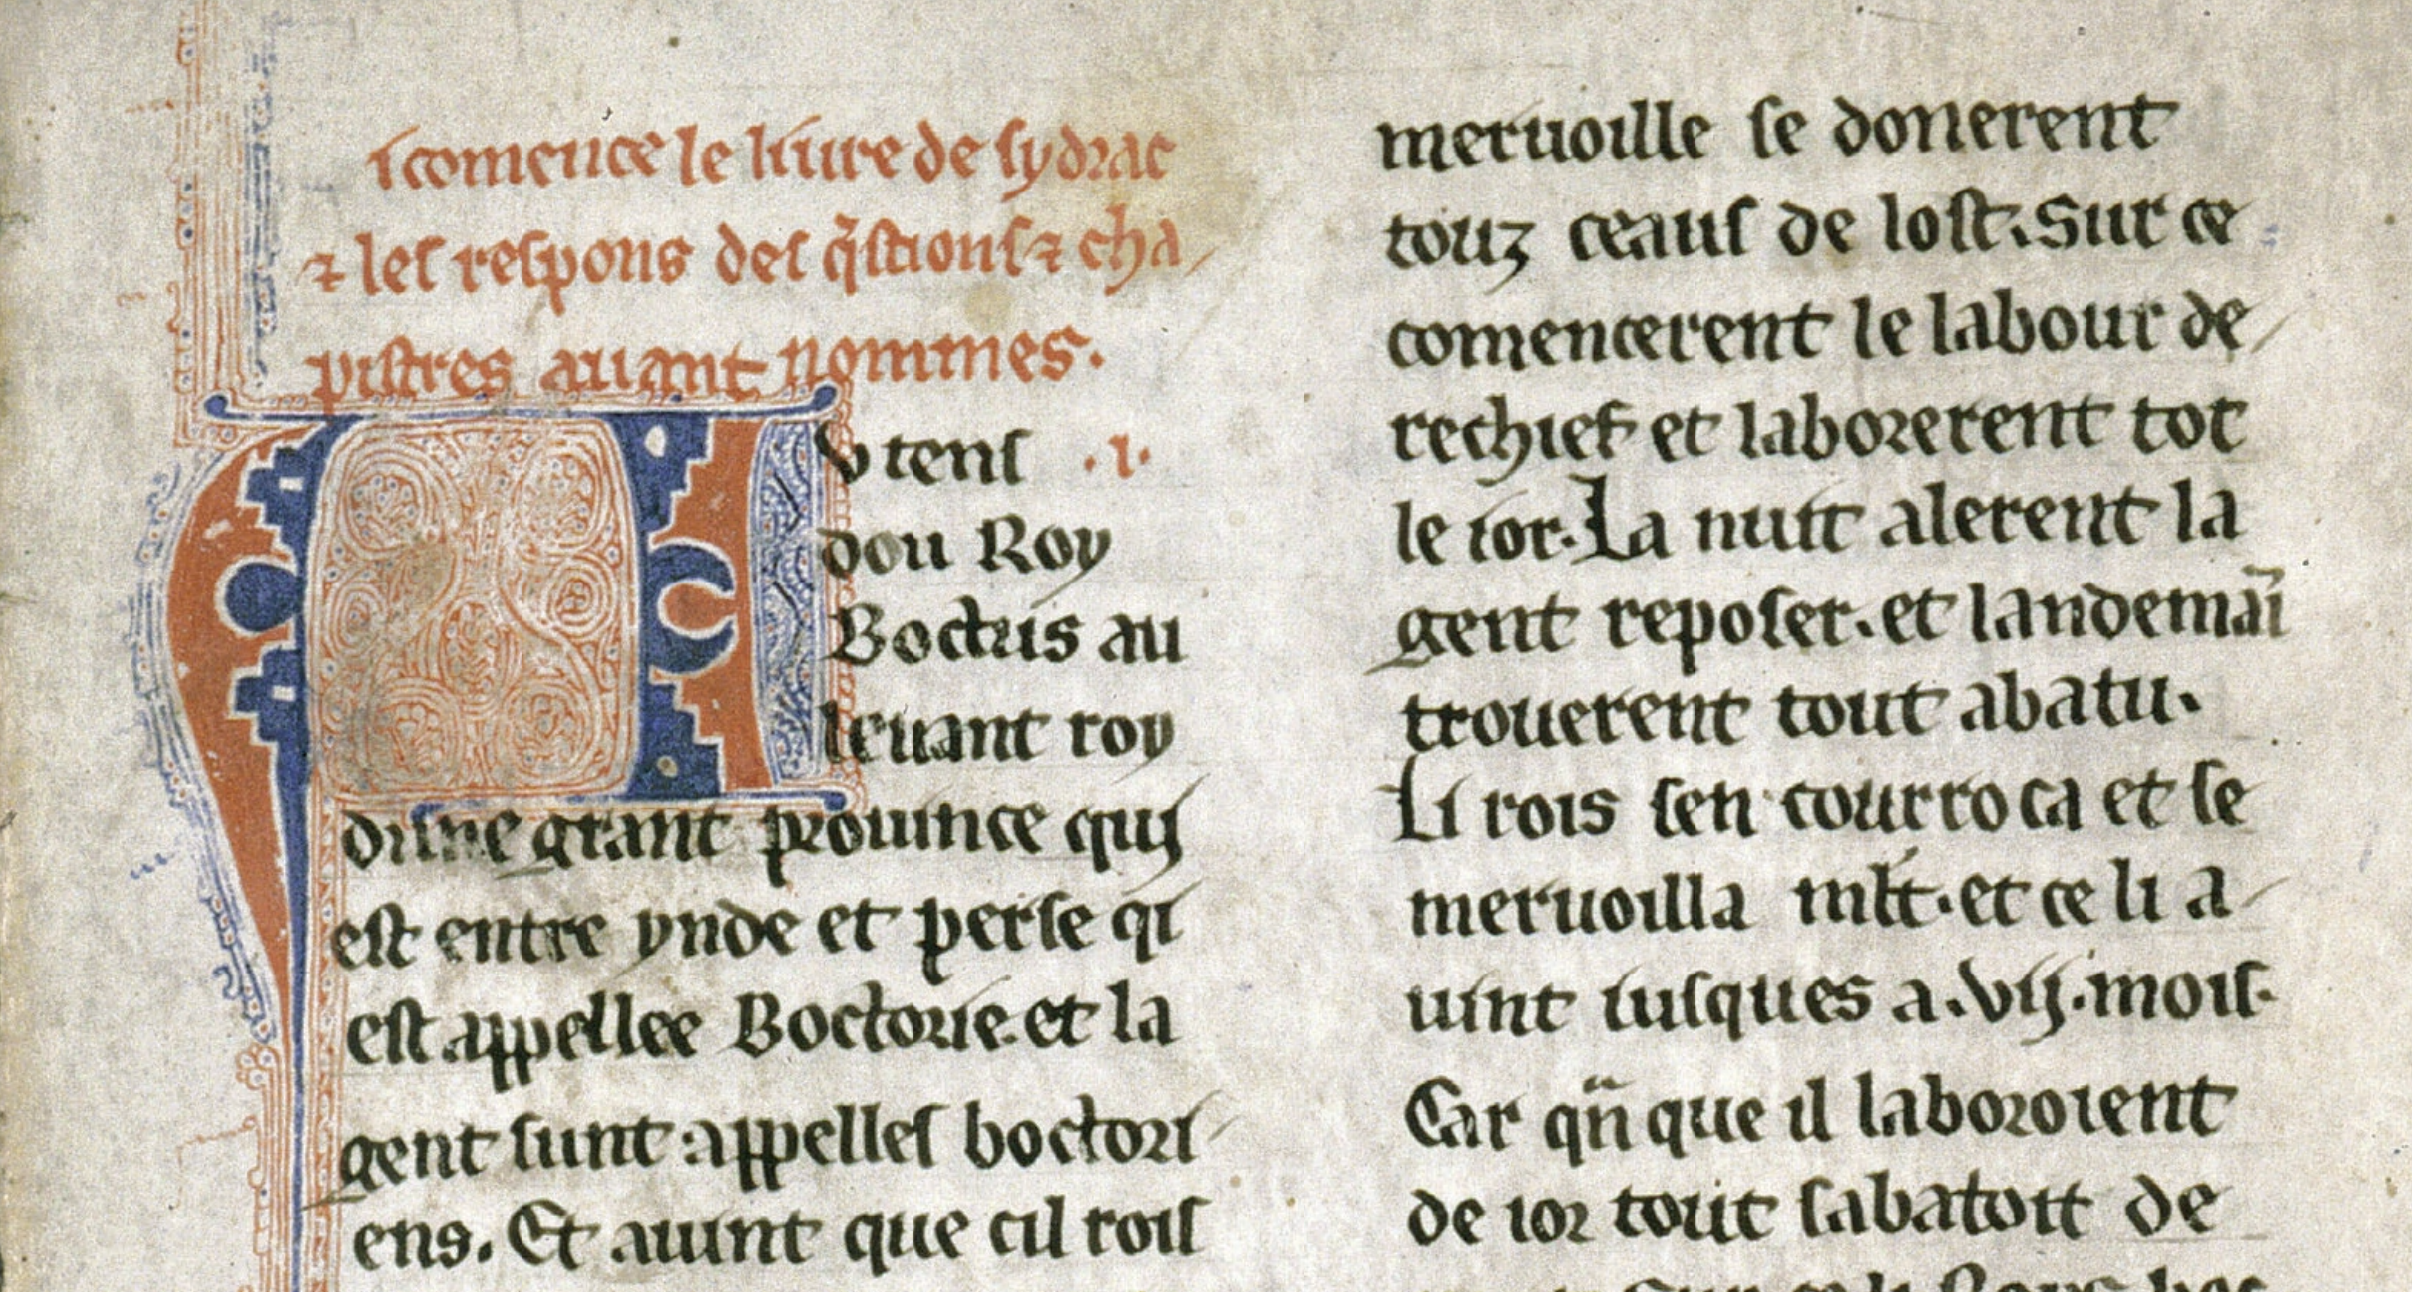 i comence le liure de sydrac
⁊ les respons des q̃stions ⁊ cha
pistres auant nommes.
A
v tens .i.
dou Roy
Boctus au
leuant roy
dune grant prouince quj
est entre ynde et perse qi
est appellee Boctorie. et la
gent sunt appelles boctori
ens. Et auint que cil rois
meruoille se donerent
touz ceaus de lost. Sur ce
comencerent le labour de
rechief et laborerent tot
le ior. La nuit alerent la
gent reposer. et landemaĩ
trouerent tout abatu.
Li rois sen courroca et se
meruoilla mlt̃. et ce li a
uint iusques a .vij. mois.
Car qñ que il laboroient
de ior tout sabatoit de